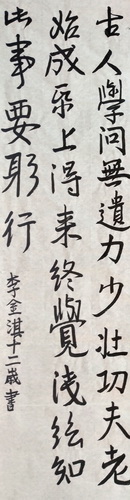 古人學问無遺力少壯功夫老
始成纸上得来终覺浅绘知
此事要躬行
李金淇十二歲書